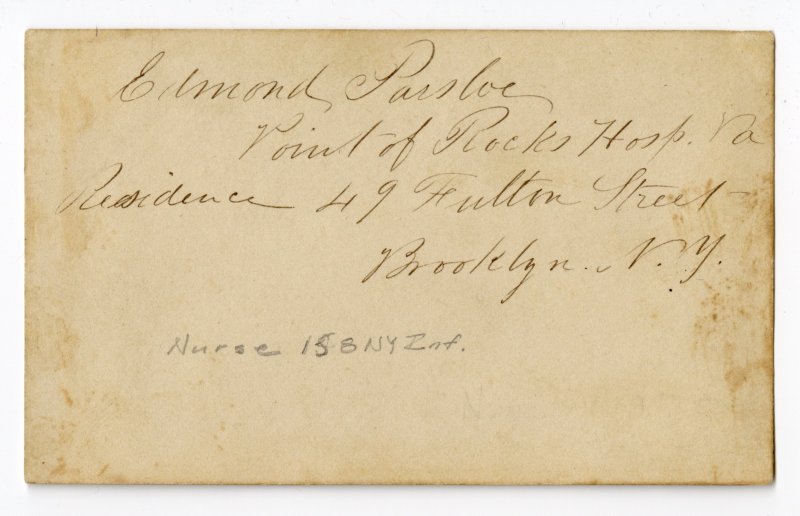 Edmond Parsloe
Point of Rocks Hosp. Va
Residence 49 Fulton Street
Brooklyn. N. Y.
Nurse 158 NY Inf.